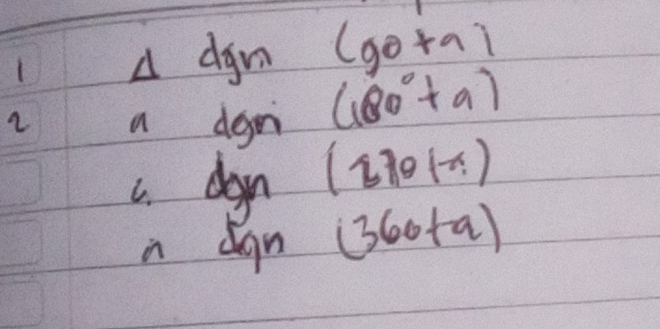 1 Δ dgn (90+a)
2 a dgn (180°+a)
dgn (270+a)
a dgn (360+a)